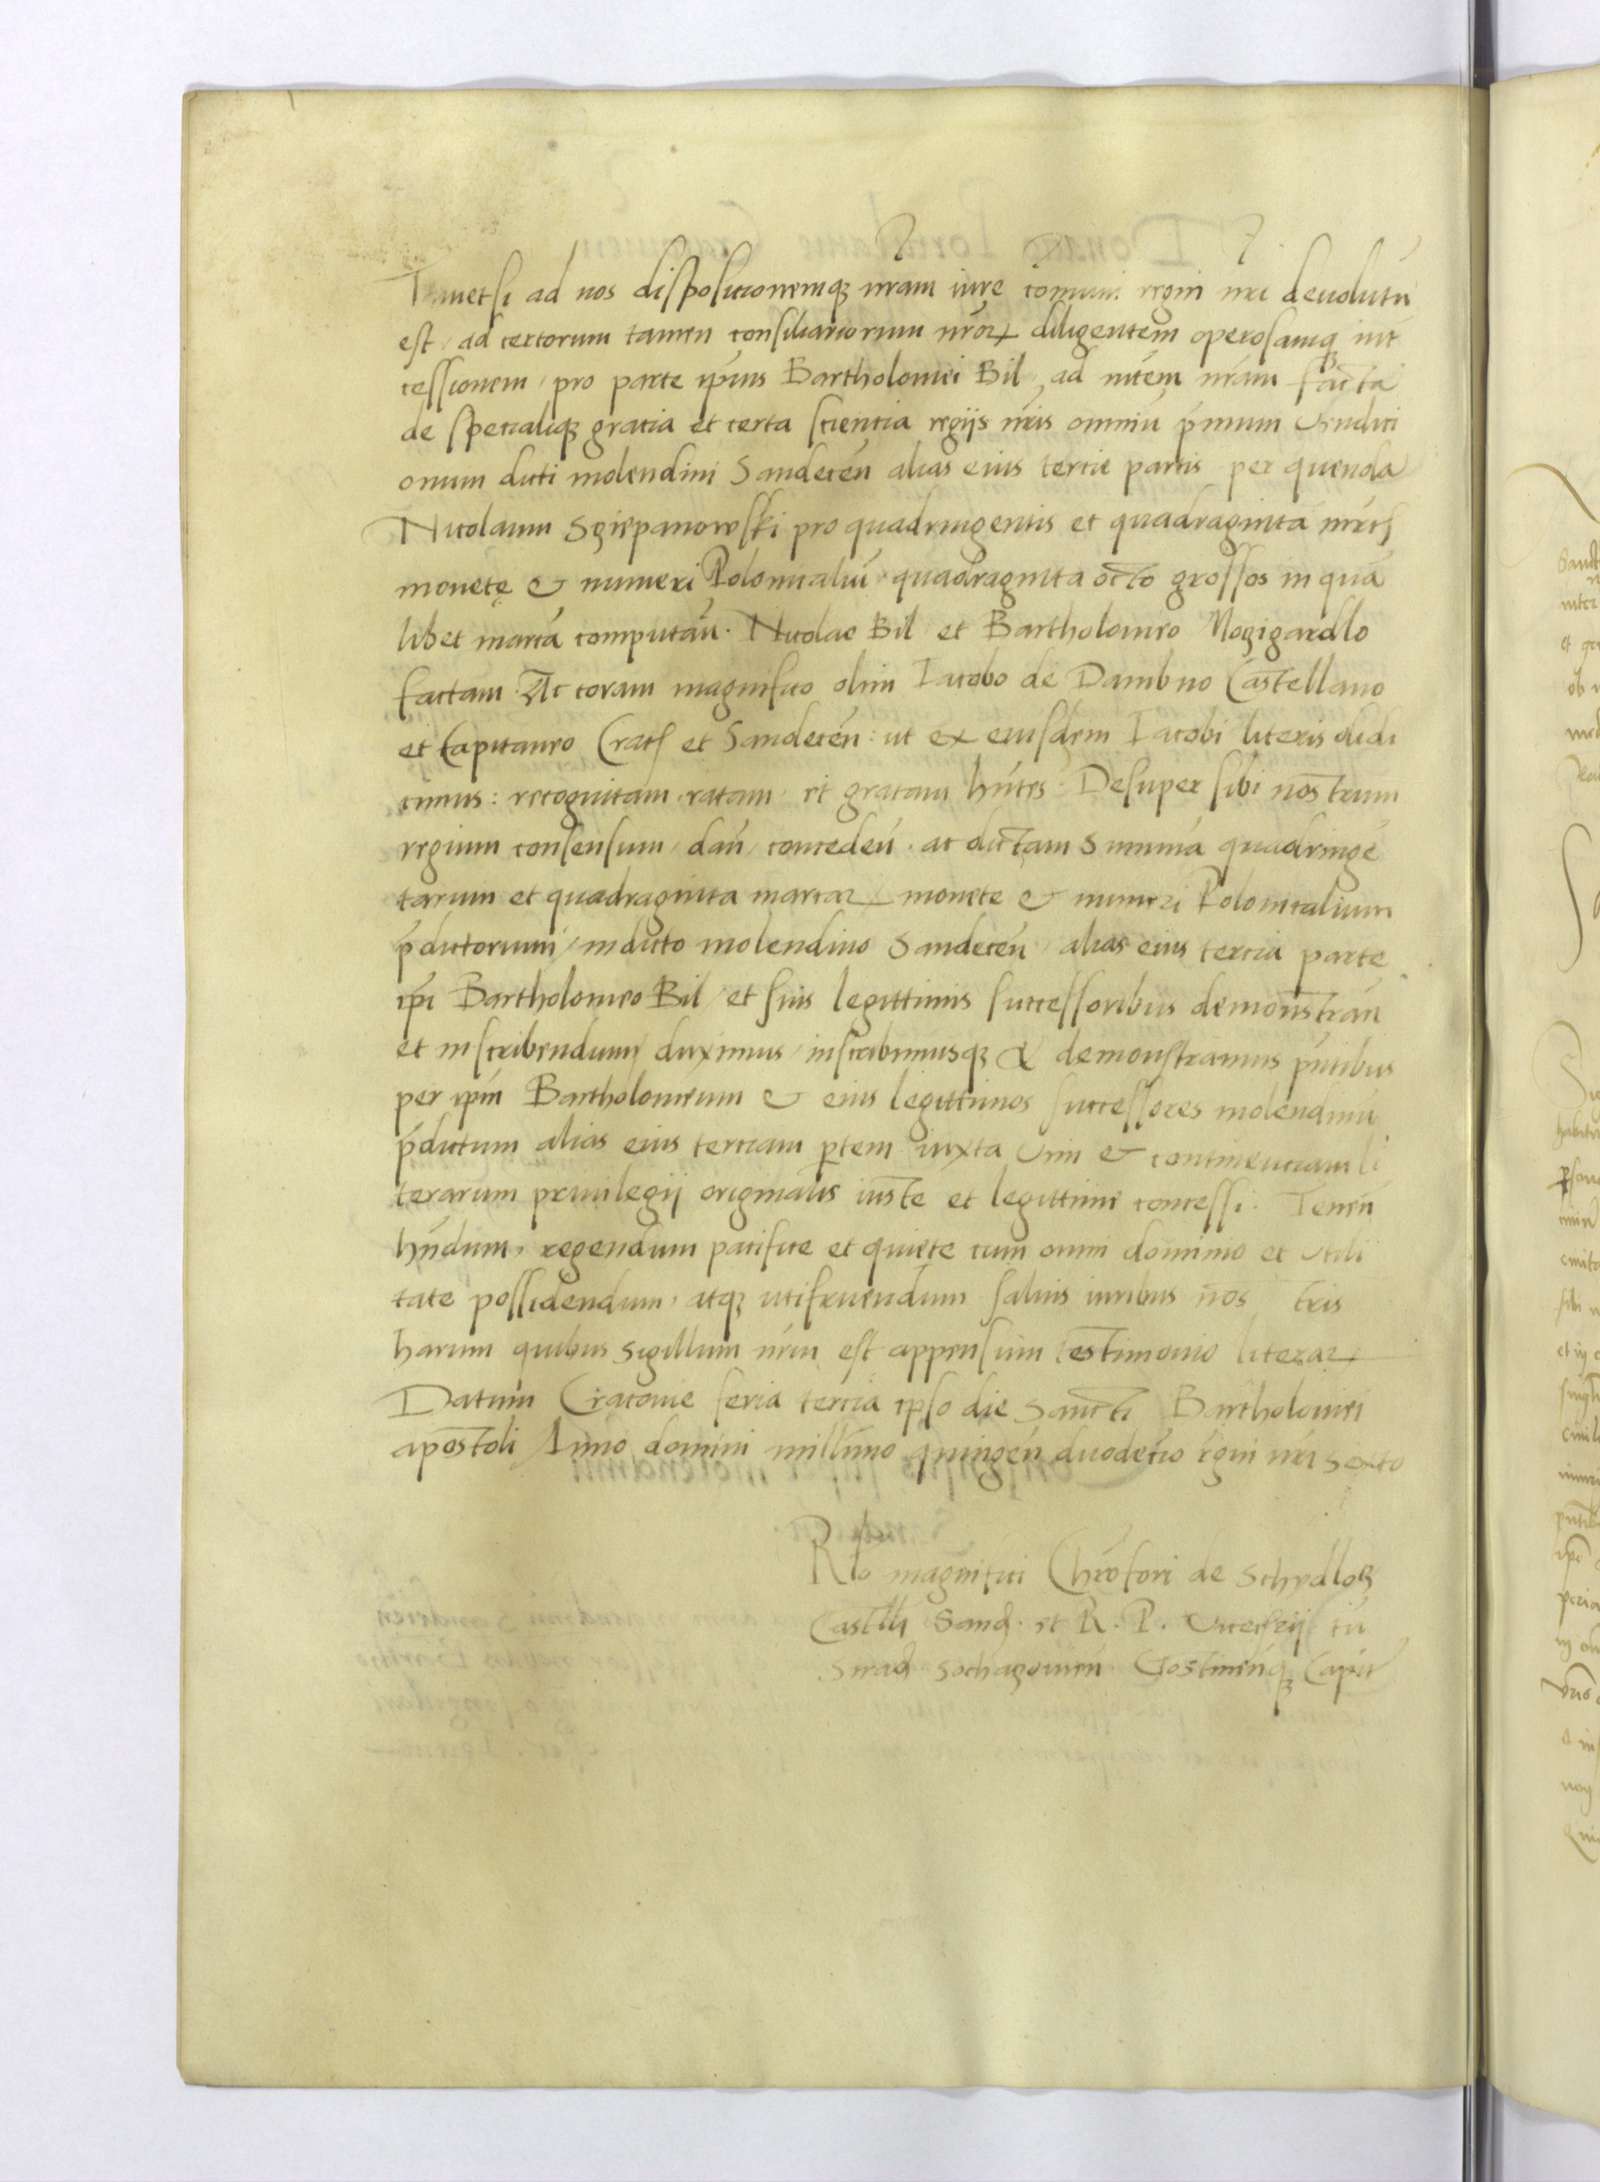 Tametsi ad nos disposicionemq; nram iure comuni regni nri devolutu
est, ad certorum tamen consiliariorum nror diligentem operosamq; int
cessionem, pro parte ipius Bartholomei Bil, ad mtem nram facta
de specialiq; gratia et certa scientia regijs nris omniu pmum venditi
onum dicti molendini Sandecen alias eius tercie partis per quenda
Nicolaum Sgiepanowski pro quadringentis et quadraginta mrcs
monete & numeri Polonicaliu quadraginta octo grossos in qua
libet marca computan. Nicolao Bil et Bartholomeo Nozigardlo
factam. Ac coram magnifico olim Iacobo de Dambno Castellano
et Capitaneo Crac et Sandecen: ut ex eiusdem Iacobi literis didi
cimus: recognitam, ratam, et gratam hntes: Desuper sibi nostrum
regium consensum, dan, conceden. ac dictam summa quadringe
tarum et quadraginta marcar monete & numeri Polonicalium
pdictorum, in dicto molendino Sandecen, alias eius tercia parte
ipi Bartholomeo Bil, et suis legittimis successoribus demonstran
et inscribendum, duximus, inscribimusq; & demonstramus pntibus
per ipm Bartholomeum & eius legittimos successores molendinu
pdictum alias eius terciam ptem iuxta vim & continenciam li
terarum privilegij originalis iuste et legittime concessi. Tenen
hndum, regendum pacifice et quiete cum omni dominio et utili
tate possidendum, atq; utifruendum salvis iuribus nos tris
harum quibus sigillum nrm est appensum testimonio literar
Datum Cracovie feria tercia ipso die Sancti Bartholomei
apostoli Anno domini millimo quingen duodecio rgni nri sexto
Rlo magnifici Chrofori de Schydlow
Castlli Sand. et R. P. Vicecrij ac
Sirad Sochazovien Gostinenq; Capit